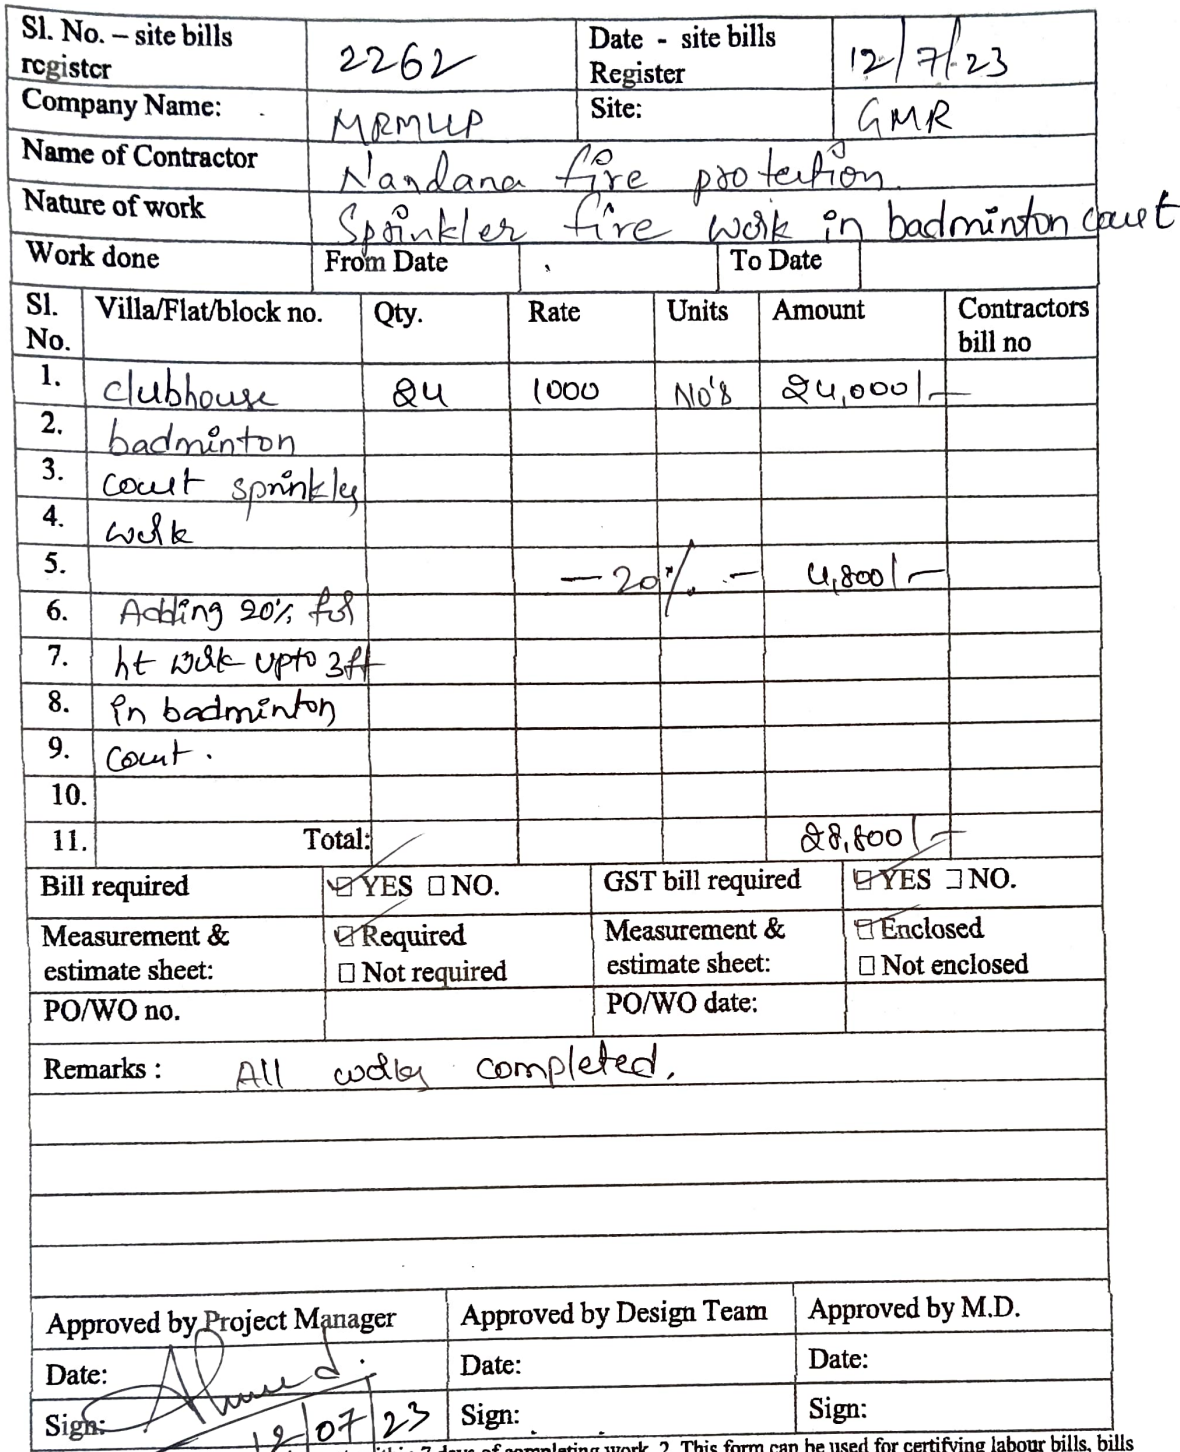 Sl. No. – site bills register 2262 Date - site bills Register 12/7/23
Company Name: MRMLLP Site: GMR
Name of Contractor Nandana fire protection
Nature of work Sprinkler fire work in badminton court
Work done From Date To Date
Sl. No. Villa/Flat/block no. Qty. Rate Units Amount Contractors bill no
1. clubhouse 24 1000 No's 24,000/-
2. badminton
3. court sprinkler
4. work
5. — 20% — 4,800/-
6. Adding 20% for
7. ht work upto 3ft
8. in badminton
9. court.
10.
11. Total: 28,800/-
Bill required ☑ YES ☐ NO. GST bill required ☑ YES ☐ NO.
Measurement & estimate sheet: ☑ Required ☐ Not required Measurement & estimate sheet: ☑ Enclosed ☐ Not enclosed
PO/WO no. PO/WO date:
Remarks : All works completed.
Approved by Project Manager Approved by Design Team Approved by M.D.
Date: Date: Date:
Sign: Ahmed. 12/07/23 Sign: Sign:
7 days of completing work. 2. This form can be used for certifying labour bills, bills